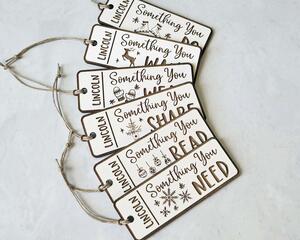 LINCOLN
Something You
LINCOLN
Something You
LINCOLN
Something You
LINCOLN
Something You
SHARE
LINCOLN
Something You
READ
LINCOLN
Something You
NEED